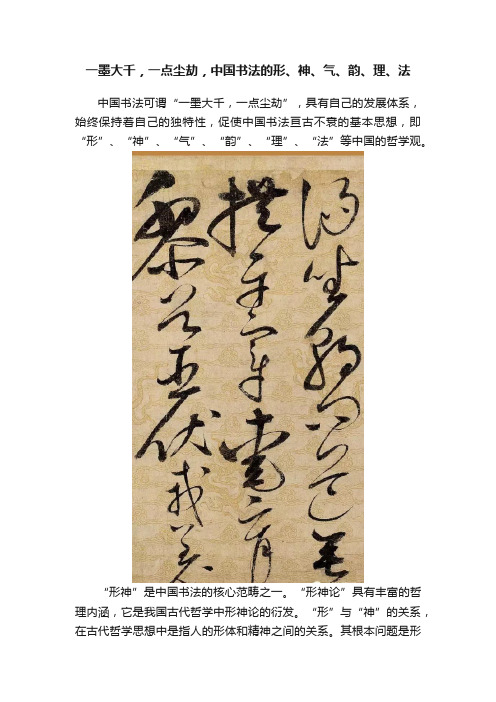 一墨大千，一点尘劫，中国书法的形、神、气、韵、理、法
中国书法可谓“一墨大千，一点尘劫”，具有自己的发展体系，
始终保持着自己的独特性，促使中国书法亘古不衰的基本思想，即
“形”、“神”、“气”、“韵”、“理”、“法”等中国的哲学观。
湯坐朝問道垂
拱平章愛育
黎首臣伏戎羌
“形神”是中国书法的核心范畴之一。“形神论”具有丰富的哲
理内涵，它是我国古代哲学中形神论的衍发。“形”与“神”的关系，
在古代哲学思想中是指人的形体和精神之间的关系。其根本问题是形